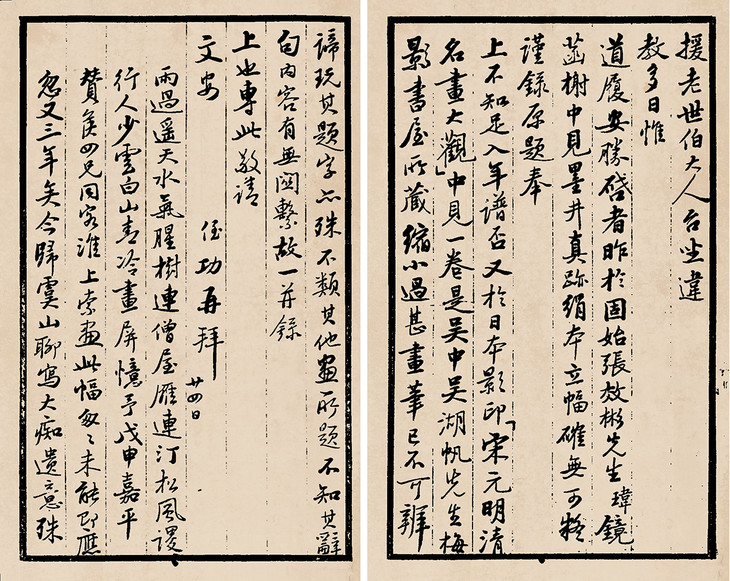 援老世伯大人台坐違
教多日惟
道履安勝啓者昨於固始張效彬先生瑋鏡
菡榭中見墨井真跡絹本立幅確無可疑
謹錄原題奉
上不知足入年譜否又於日本影印「宋元明清
名畫大觀」中見一卷是吳中吳湖帆先生梅
影書屋所藏縮小過甚畫筆已不可辨
諦玩其題字亦殊不類其他畫所題不知其辭
句內容有無關繫故一并錄
上也專此敬請
文安
侄功再拜 廿四日
雨過遥天水氣腥樹連僧屋雁連汀松風謖
行人少雲白山青冷畫屏憶予戊申嘉平
贊侯四兄同客淮上索畫此幅匆々未能即應
忽又三年矣今歸虞山聊寫大痴遺意殊